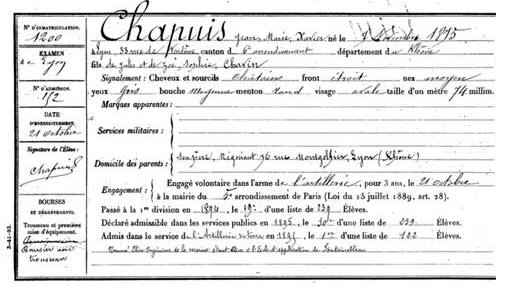 N° D'IMMATRICULATION
1200
EXAMEN
de Lyon
N° D'ADMISSION
172
DATE
D'ENREGISTREMENT
21 octobre
Signature de l'Élève :
Chapuis
BOURSES
ET DÉGRÈVEMENTS
Trousseau et première
mise d'équipement.
trousseau
Chapuis Jean Marie Xavier né le 1875
à Lyon, 33 rue de Vendôme canton d 6e arrondissement département du Rhône
fils de Jules et de Zoé, Sophie, Chavin
Signalement : Cheveux et sourcils châtains front étroit nez moyen
yeux gris bouche moyenne menton rond visage ovale taille d'un mètre 74 millim.
Marques apparentes :
Services militaires :
Domicile des parents : 96 rue Montgolfier, Lyon (Rhône)
Engagement : Engagé volontaire dans l'arme de l'artillerie, pour 3 ans, le 21 octobre
à la mairie du 5e arrondissement de Paris (Loi du 15 juillet 1889, art. 28).
Passé à la 1re division en 1894, le 19e d'une liste de 239 Élèves.
Déclaré admissible dans les services publics en 1895, le 30e d'une liste de 299 Élèves.
Admis dans le service de l'Artillerie de terre en 1895, le 1er d'une liste de 122 Élèves.